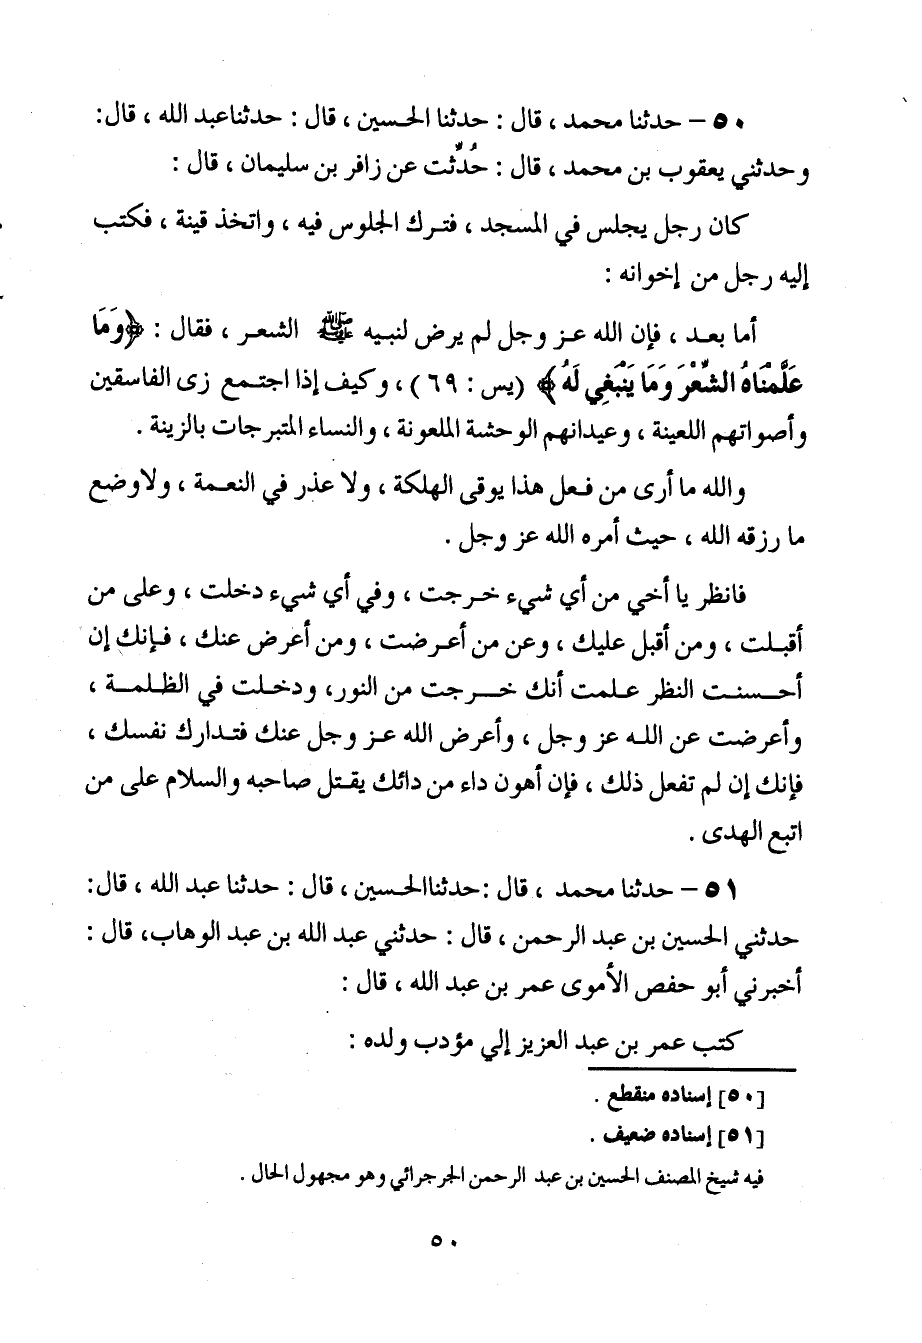 ٥٠ – حدثنا محمد ، قال : حدثنا الحسين ، قال : حدثناعبد الله ، قال:
وحدثني يعقوب بن محمد ، قال : حُدِّثت عن زافر بن سليمان ، قال :
كان رجل يجلس في المسجد ، فترك الجلوس فيه ، واتخذ قينة ، فكتب
إليه رجل من إخوانه :
أما بعد ، فإن الله عز وجل لم يرض لنبيه ﷺ الشعر ، فقال : ﴿وَمَا
عَلَّمْنَاهُ الشِّعْرَ وَمَا يَنْبَغِي لَهُ﴾ (يس : ٦٩) ، وكيف إذا اجتمع زى الفاسقين
وأصواتهم اللعينة ، وعيدانهم الوحشة الملعونة ، والنساء المتبرجات بالزينة .
والله ما أرى من فعل هذا يوقى الهلكة ، ولا عذر في النعمة ، ولاوضع
ما رزقه الله ، حيث أمره الله عز وجل .
فانظر يا أخي من أي شيء خرجت ، وفي أي شيء دخلت ، وعلى من
أقبلت ، ومن أقبل عليك ، وعن من أعرضت ، ومن أعرض عنك ، فإنك إن
أحسنت النظر علمت أنك خرجت من النور، ودخلت في الظلمة ،
وأعرضت عن الله عز وجل ، وأعرض الله عز وجل عنك فتدارك نفسك ،
فإنك إن لم تفعل ذلك ، فإن أهون داء من دائك يقتل صاحبه والسلام على من
اتبع الهدى .
٥١ – حدثنا محمد ، قال :حدثناالحسين ، قال : حدثنا عبد الله ، قال:
حدثني الحسين بن عبد الرحمن ، قال : حدثني عبد الله بن عبد الوهاب، قال :
أخبرني أبو حفص الأموى عمر بن عبد الله ، قال :
كتب عمر بن عبد العزيز إلي مؤدب ولده :
[٥٠] إسناده منقطع .
[٥١] إسناده ضعيف .
فيه شيخ المصنف الحسين بن عبد الرحمن الجرجرائي وهو مجهول الحال .
٥٠